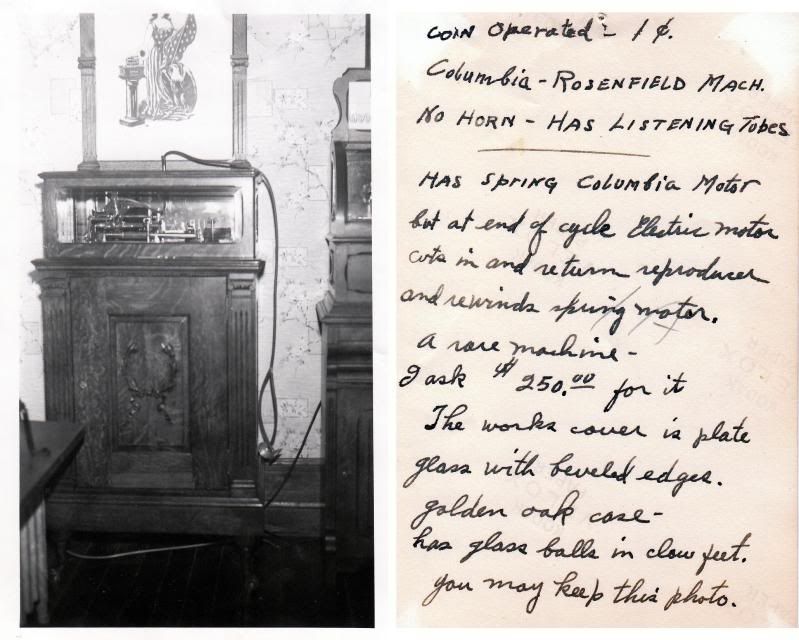 COIN Operated - 1¢.
Columbia - ROSENFIELD MACH.
NO HORN - HAS LISTENING Tubes
HAS SPRING Columbia Motor
but at end of cycle Electric motor
cuts in and return reproducer
and rewinds spring motor.
A rare machine -
I ask $250.00 for it
The works cover is plate
glass with beveled edges.
golden oak case -
has glass balls in claw feet.
you may keep this photo.